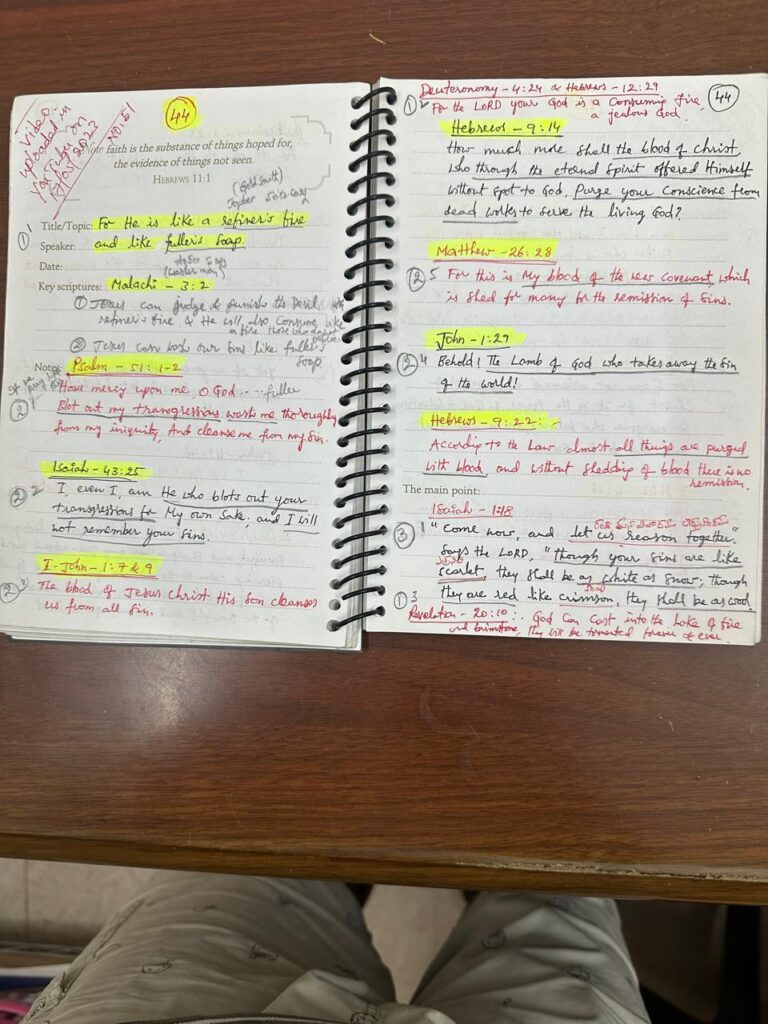 Video
uploaded in
YouTube on
2023
NO: 51
44
Now faith is the substance of things hoped for,
the evidence of things not seen.
HEBREWS 11:1
(Gold Smith)
Title/Topic: For He is like a refiner's fire
Speaker: and like fuller's Soap
Date:
(washer man)
Key scriptures: Malachi - 3:2
① Jesus can judge & punish the Devil
refiner's fire & He will also Consume like
a fire those who do not
② Jesus can wash our Sins like fuller's
Soap
Notes: Psalm - 51:1-2
Have mercy upon me, O God ....
② Blot out my transgressions wash me thoroughly
from my iniquity, And cleanse me from my Sin.
Isaiah - 43:25
② 2 I, even I, am He who blots out your
transgressions for My own Sake; and I will
not remember your Sins.
I-John - 1:7 & 9
② 3 The blood of Jesus Christ His Son cleanses
us from all Sin.
Deuteronomy - 4:24 & Hebrews - 12:29
44
① 2 For the LORD your God is a Consuming fire,
a jealous God.
Hebrews - 9:14
How much more shall the blood of Christ,
who through the eternal Spirit offered Himself
without Spot to God, Purge your Conscience from
dead works to Serve the living God?
Matthew - 26:28
② 5 For this is My blood of the new Covenant, which
is shed for many for the remission of Sins.
John - 1:29
② 4 Behold! The Lamb of God who takes away the Sin
of the world!
Hebrews - 9:22:-
According to the Law almost all things are purged
with blood, and without shedding of blood there is no
remission.
The main point:
Isaiah - 1:18
③ 1 "Come now, and let us reason together."
Says the LORD, "Though your Sins are like
Scarlet, they shall be as white as Snow; though
they are red like crimson, they shall be as wool
① 3
Revelation - 20:10:- God Can Cast into the Lake of fire
and brimstone, they will be tormented forever & ever.